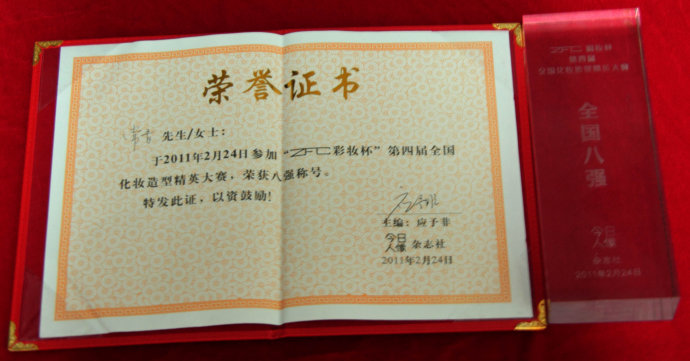 荣誉证书
先生/女士：
于2011年2月24日参加“ZFC彩妆杯”第四届全国
化妆造型精英大赛，荣获八强称号。
特发此证，以资鼓励！
主编：应子菲
今日人像 杂志社
2011年2月24日
ZFC 彩妆杯
第四届
全国化妆造型精英大赛
全国八强
今日人像
杂志社
2011年2月24日